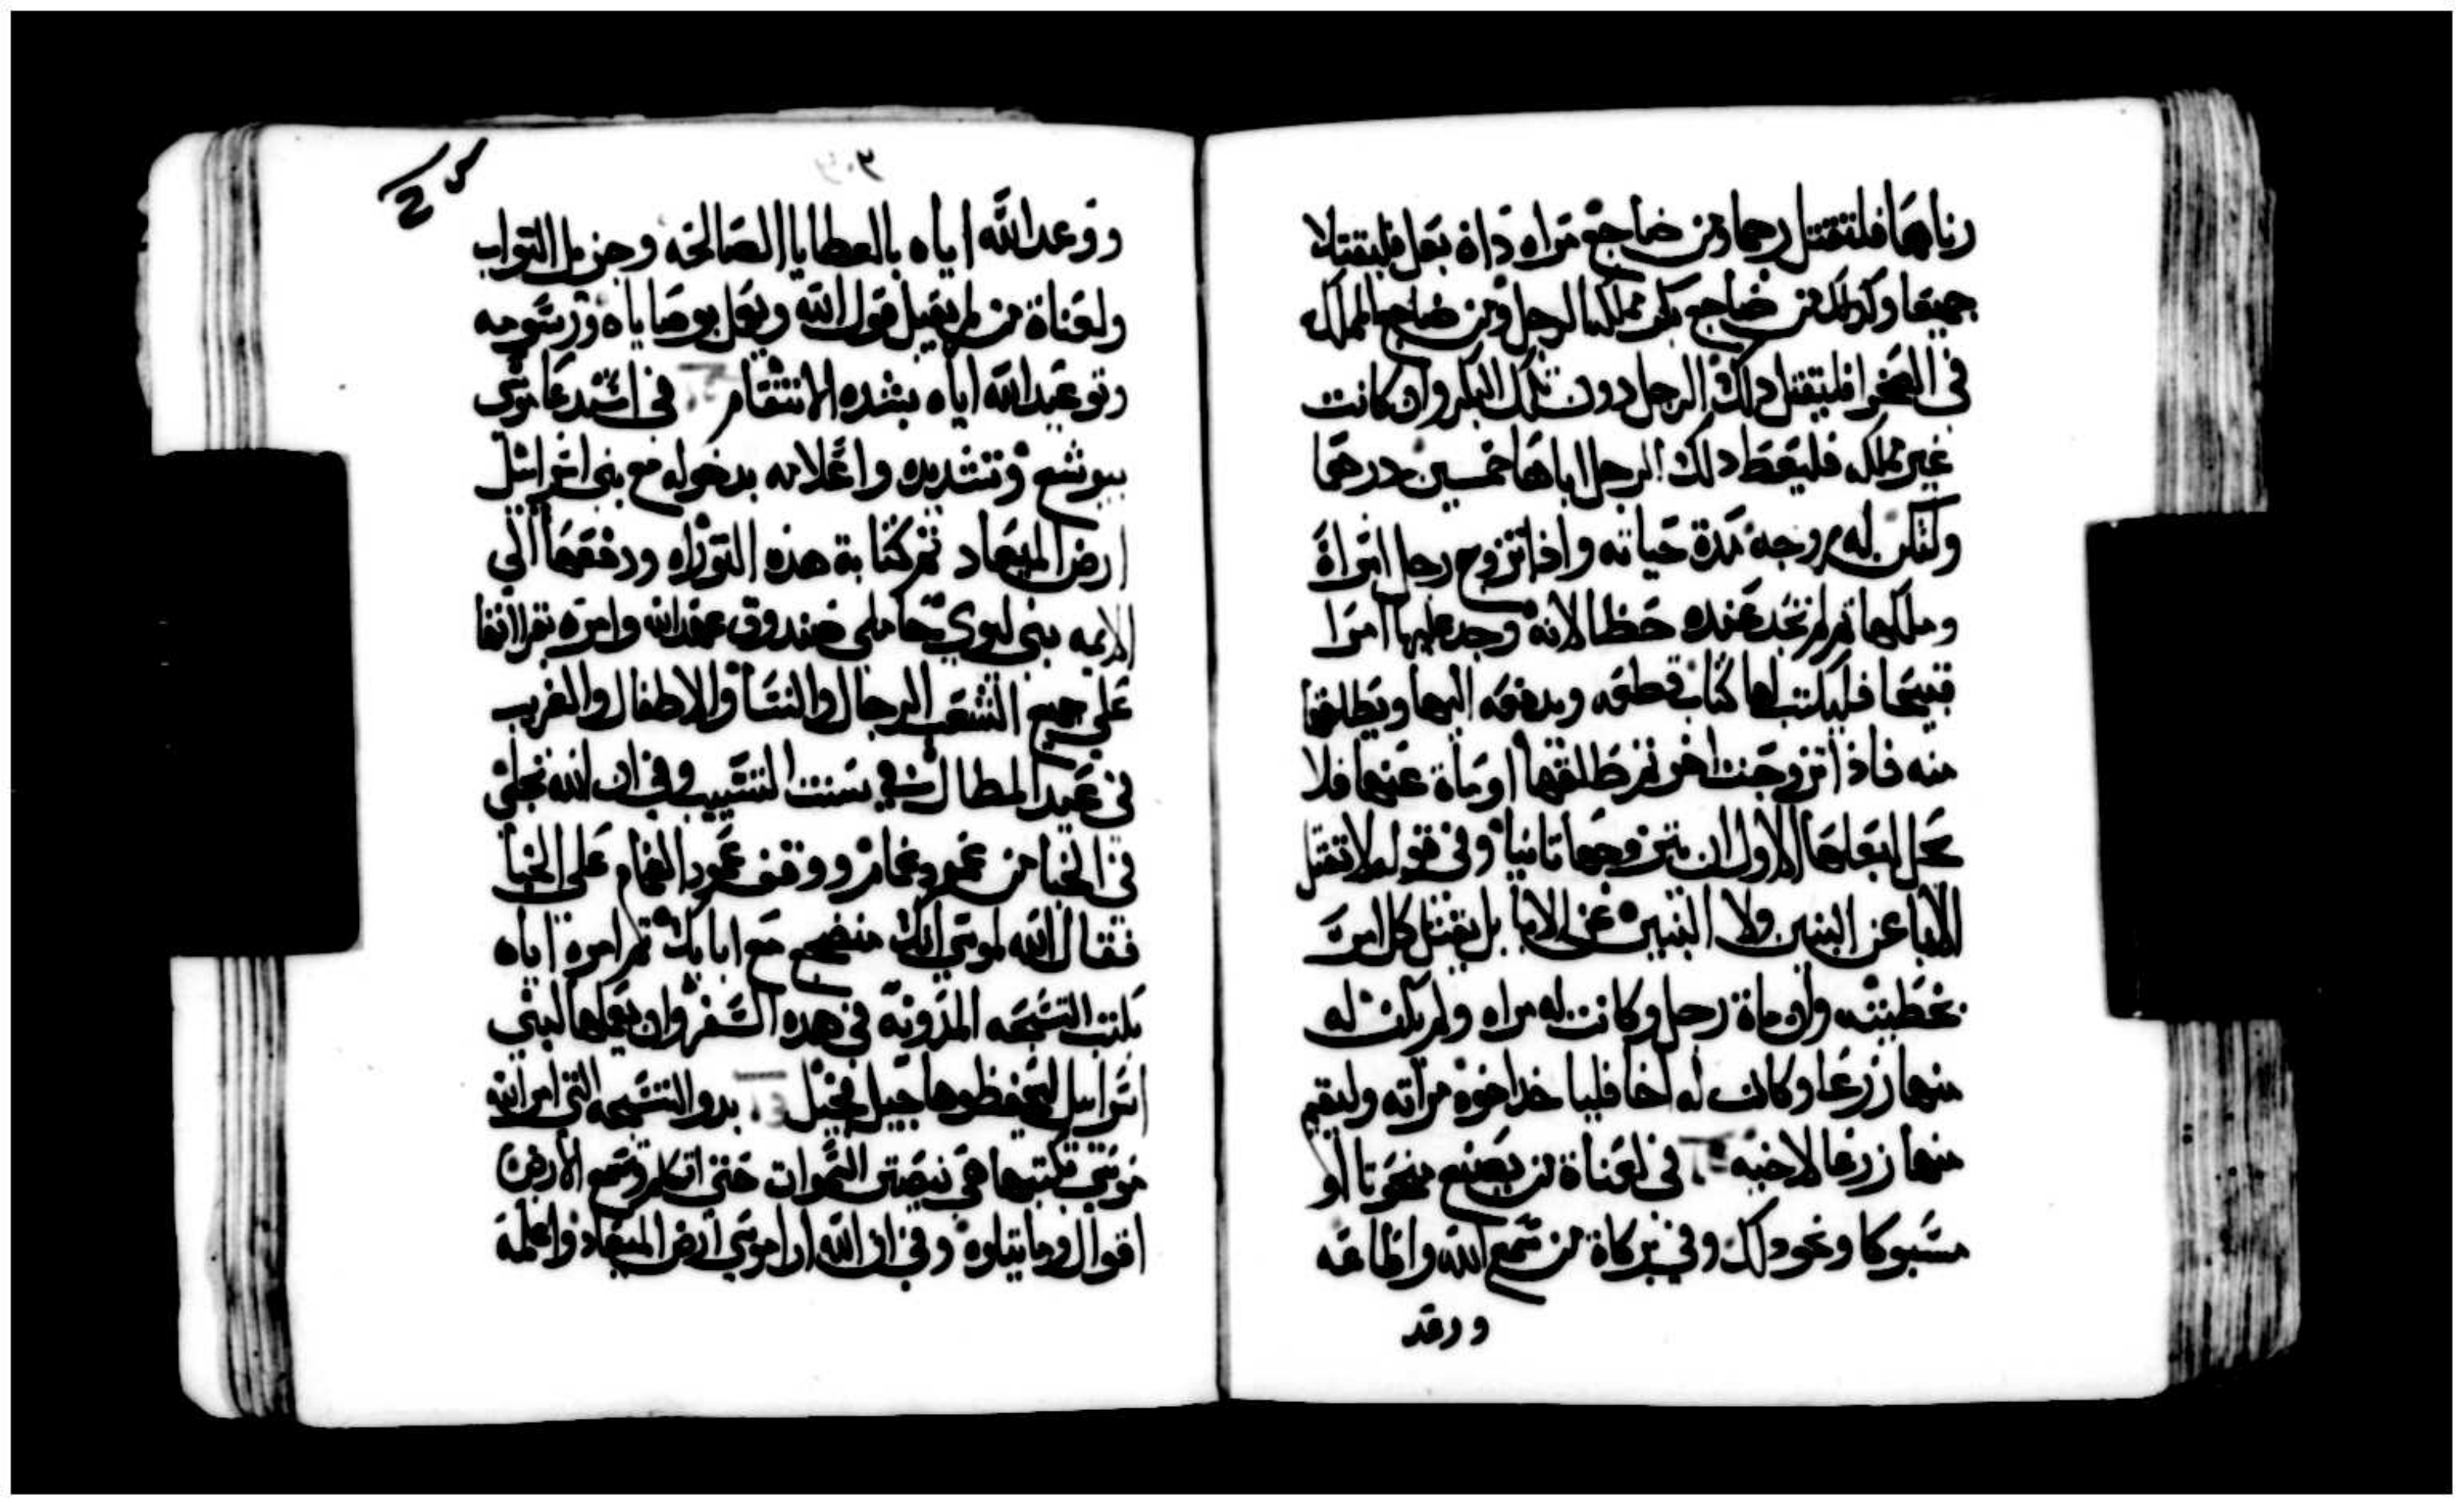 زناهما فلتقتل رجما ومن ضاجع مراه داة بعل فليقتلا
جميعا وكدلك من ضاجع بكر مملكه الرجل ومن ضاجع المملكه
في الصحرا فليقتل دلك الرجل دون تلك البكر وان كانت
غير مملكه فليعط دلك الرجل اباها خمسين درهما
ولتكن له زوجه مدة حياته واذا تزوج رجل امراة
وملكها ثم لم تجد عنده حظا لانه وجد عليها امرا
قبيحا فليكتب لها كتاب قطعه ويدفعه اليها ويطلقها
منه فاذا تزوجت اخر ثم طلقها او ماة عنها فلا
يحل لبعلها الاول ان يتزوجها تانيا وفي قوله لا تقتل
الابا عن البنين ولا البنين عن الابا بل يقتل كل امره
بخطيته وان ماة رجل وكانت له مراه ولم يكن له
منها زرعا وكان له اخا فلياخد اخوه مراته وليقيم
منها زرعا لاخيه في لعناة من يصنع منحوتا او
مسبوكا ونحو دلك وفي بركاة من سمع الله واطاعه
ووعد
ووعد الله اياه بالعطايا الصالحه وجزيل التواب
ولعناة من لم يقبل قول الله ويعمل بوصاياه ورسومه
وتوعيد الله اياه بشده الانتقام في استدعا موسى
بيوشع وتشديده واعلامه بدخوله مع بني اسرائيل
ارض الميعاد ثم كتابة هذه التوراه ودفعها الي
الايمه بني ليوي حاملي صندوق عهد الله وامره بقراتها
علي جميع الشعب الرجال والنسا والاطفال والغريب
في عيد المطال في سنت التسييب وفي ان الله تجلي
في الخبا من عمود غمام ووقف عمود الغمام على الخبا
فقال الله لموسي انك منضجع مع ابايك ثم امره اياه
بكتب التسبحه المدونه في هده السفر وان يعملها لبني
اسراييل ليحفظوها جيل فجيل بدو التسبحه التي امر الله
موسي بكتبها هي نيصتي السموات حتي اتكلم وتسمع الارض
اقوال وما يتلوه وفي ان الله ارا موسي ارض الميعاد واعلمه